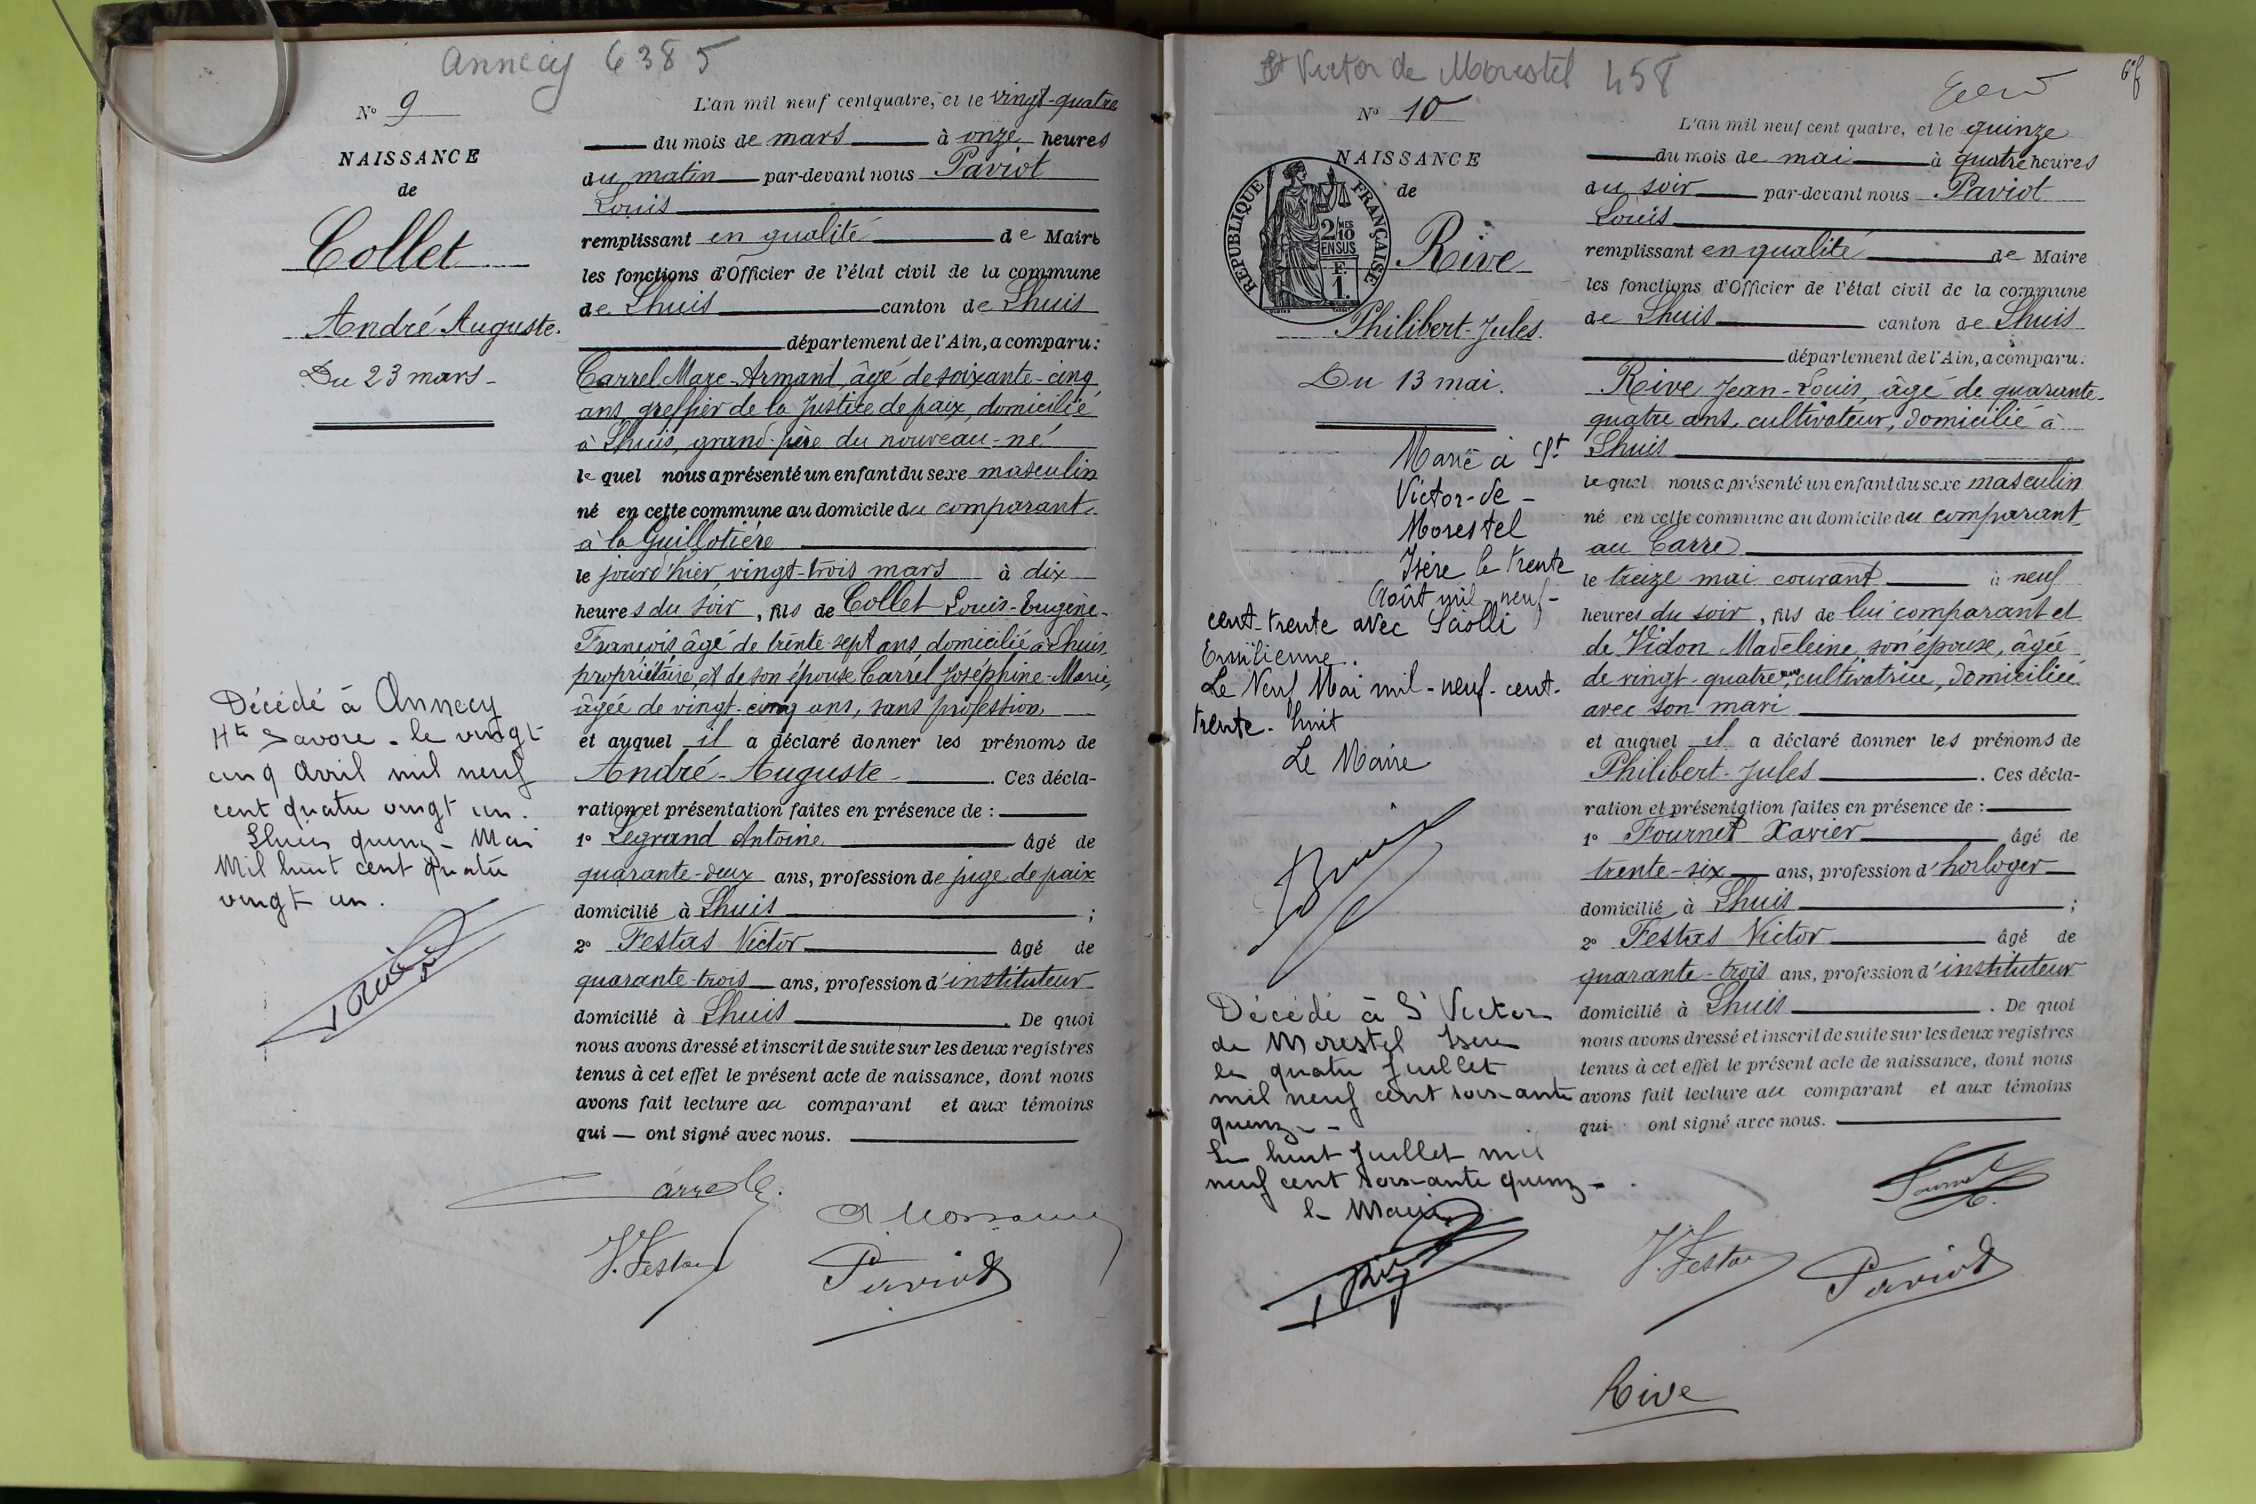 Annecy 6385
N° 9
NAISSANCE
de
Collet
André Auguste.
Du 23 mars
Décédé à Annecy
Hte Savoie - le vingt
cinq avril mil neuf
cent quatre vingt un.
Lhuis quinze Mai
Mil huit cent quatre
vingt un.
L'an mil neuf cent quatre, et le vingt-quatre
du mois de mars à onze heures
du matin par-devant nous Paviot
Louis
remplissant en qualité de Maire
les fonctions d'Officier de l'état civil de la commune
de Lhuis canton de Lhuis
département de l'Ain, a comparu:
Carrel Marc-Armand, âgé de soixante-cinq
ans, greffier de la Justice de paix, domicilié
à Lhuis, grand-père du nouveau-né
lequel nous a présenté un enfant du sexe masculin
né en cette commune au domicile du comparant
à la Guillotière
le jourd'hier, vingt-trois mars à dix
heures du soir, fils de Collet Louis-Eugène-
François âgé de trente-sept ans, domicilié à Lhuis,
propriétaire et de son épouse Carrel Joséphine-Marie,
âgée de vingt-cinq ans, sans profession
et auquel il a déclaré donner les prénoms de
André-Auguste. Ces décla-
ration et présentation faites en présence de :
1° Legrand Antoine âgé de
quarante-deux ans, profession de juge de paix
domicilié à Lhuis ;
2° Festas Victor âgé de
quarante-trois ans, profession d'instituteur
domicilié à Lhuis. De quoi
nous avons dressé et inscrit de suite sur les deux registres
tenus à cet effet le présent acte de naissance, dont nous
avons fait lecture au comparant et aux témoins
qui — ont signé avec nous.
V. Festas
Paviot
St Victor de Morestel 458
N° 10
NAISSANCE
de
REPUBLIQUE FRANÇAISE
2 MES
10
EN SUS
F.
1.
Rive
Philibert-Jules.
Du 13 mai.
Marié à St
Victor-de-
Morestel
Isère le trente
Août mil neuf-
cent-trente avec
Emilienne.
Le Neuf Mai mil-neuf-cent-
trente-huit
Le Maire
Décédé à St Victor
de Morestel Isère
le quatre Juillet
mil neuf cent soixante
quinze
Le huit Juillet mil
neuf cent soixante quinze
le Maire
L'an mil neuf cent quatre, et le quinze
du mois de mai à quatre heures
du soir par-devant nous Paviot
Louis
remplissant en qualité de Maire
les fonctions d'Officier de l'état civil de la commune
de Lhuis canton de Lhuis
département de l'Ain, a comparu:
Rive Jean-Louis, âgé de quarante-
quatre ans, cultivateur, domicilié à
Lhuis
lequel nous a présenté un enfant du sexe masculin
né en cette commune au domicile du comparant
au Carre
le treize mai courant à neuf
heures du soir, fils de lui comparant et
de Vidon Madeleine, son épouse, âgée
de vingt-quatre ans, cultivatrice, domiciliée
avec son mari
et auquel il a déclaré donner les prénoms de
Philibert-Jules. Ces décla-
ration et présentation faites en présence de :
1° Fournet Xavier âgé de
trente-six ans, profession d'horloger
domicilié à Lhuis ;
2° Festas Victor âgé de
quarante-trois ans, profession d'instituteur
domicilié à Lhuis. De quoi
nous avons dressé et inscrit de suite sur les deux registres
tenus à cet effet le présent acte de naissance, dont nous
avons fait lecture au comparant et aux témoins
qui ont signé avec nous.
Fournet
V. Festas
Paviot
Rive